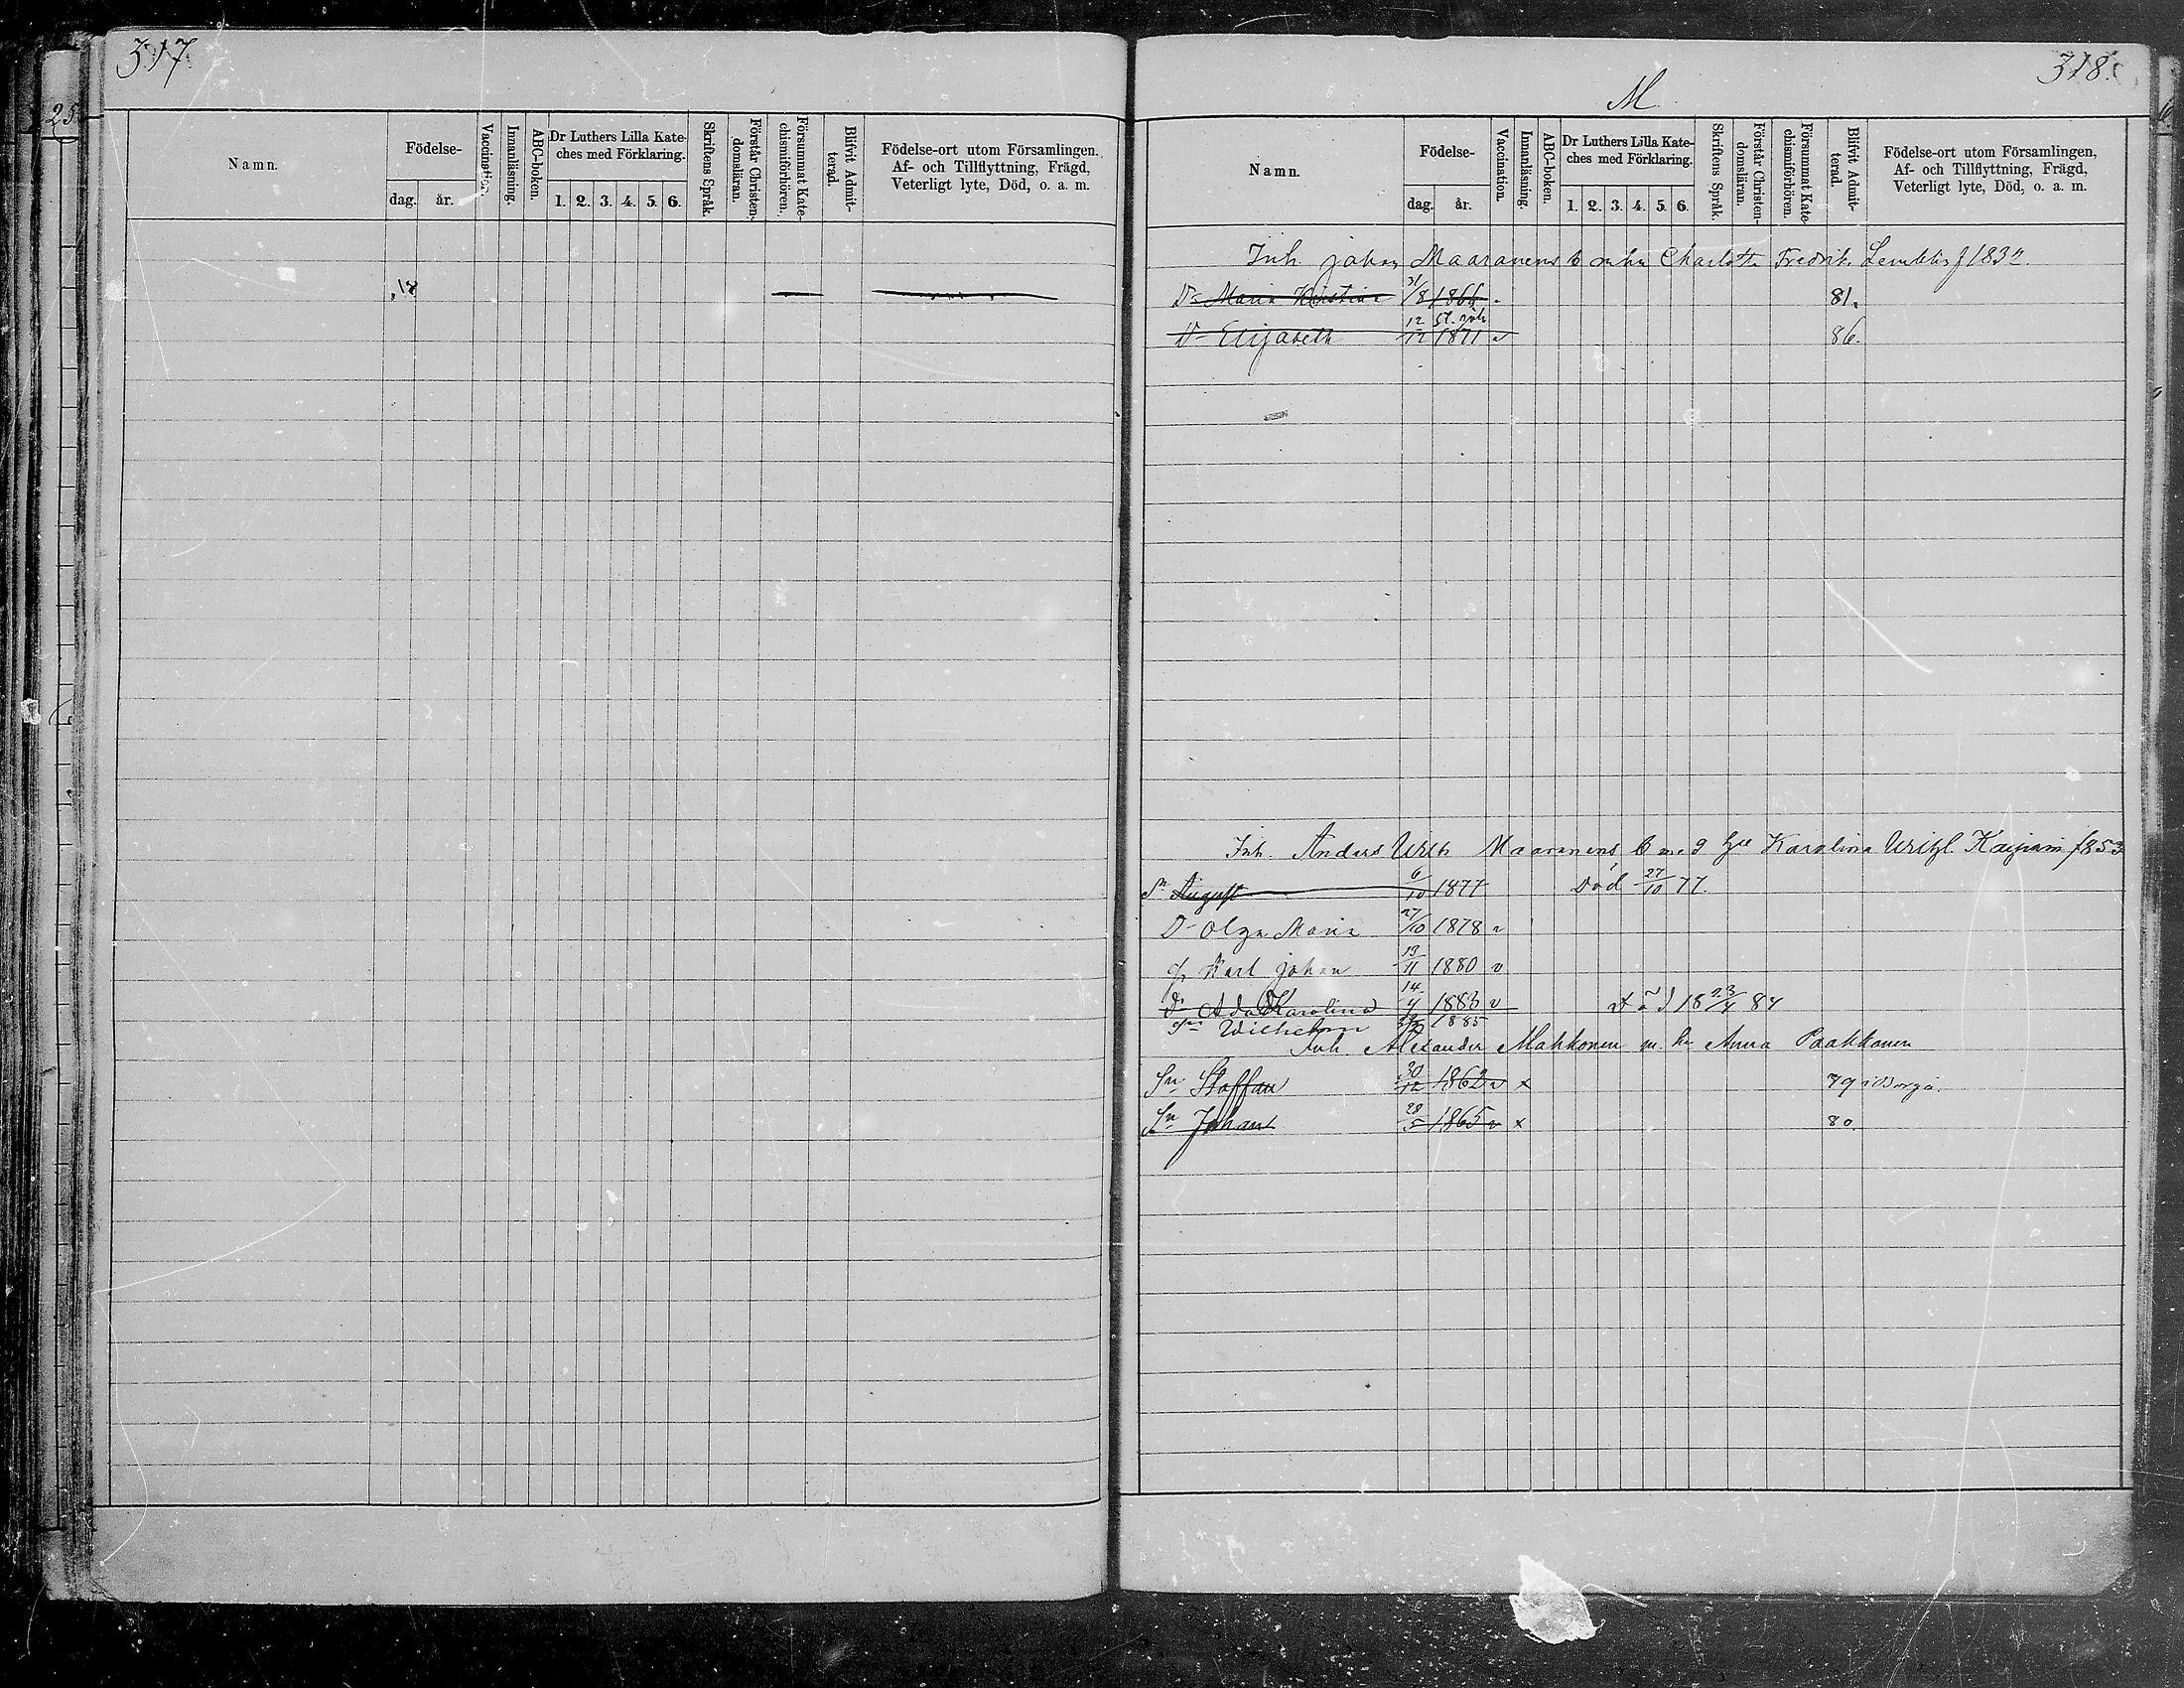 317
25
Namn.
Födelse-
dag. år.
Vaccination.
Innanläsning.
ABC-boken.
Dr Luthers Lilla Kate-
ches med Förklaring.
1. 2. 3. 4. 5. 6.
Skriftens Språk.
Förstår Christen-
domsläran.
Försummat Kate-
chismiförhören.
Blifvit Admit-
terad.
Födelse-ort utom Församlingen,
Af- och Tillflyttning, Frägd,
Veterligt lyte, Död, o. a. m.
318.
M
Namn.
Födelse-
dag. år.
Vaccination.
Innanläsning.
ABC-boken.
Dr Luthers Lilla Kate-
ches med Förklaring.
1. 2. 3. 4. 5. 6.
Skriftens Språk.
Förstår Christen-
domsläran.
Försummat Kate-
chismiförhören.
Blifvit Admit-
terad.
Födelse-ort utom Församlingen,
Af- och Tillflyttning, Frägd,
Veterligt lyte, Död, o. a. m.
Inh. Johan Maaranens b m hu Charlotta Fredrik.
Dr Maria Kristina 31/8 1866 81.
Dr Elisabeth 12/12 1871 v 86.
Inh. Anders Wilh Maaranens b med hu Karolina
Sn August 6/10 1877 Död 27/10 77.
Dr Olga Maria 27/10 1878 v
Karl Johan 13/11 1880 v
Dr Ada Karolina 14/4 1883 v Död 18 23/4 84
Sn Wilhelm 1885
Inh. Alexander Mahkonen m. hu Anna Paakkanen
Sn Staffan 30/12 1862 v x 79 i Borgå.
Sn Johan 28/5 1865 v x 80.